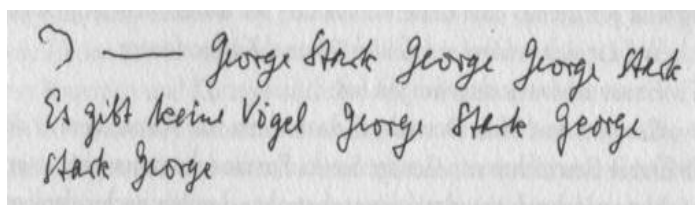 George Stack George George Stack
Es gibt keine Vögel George Stack George
Stack George